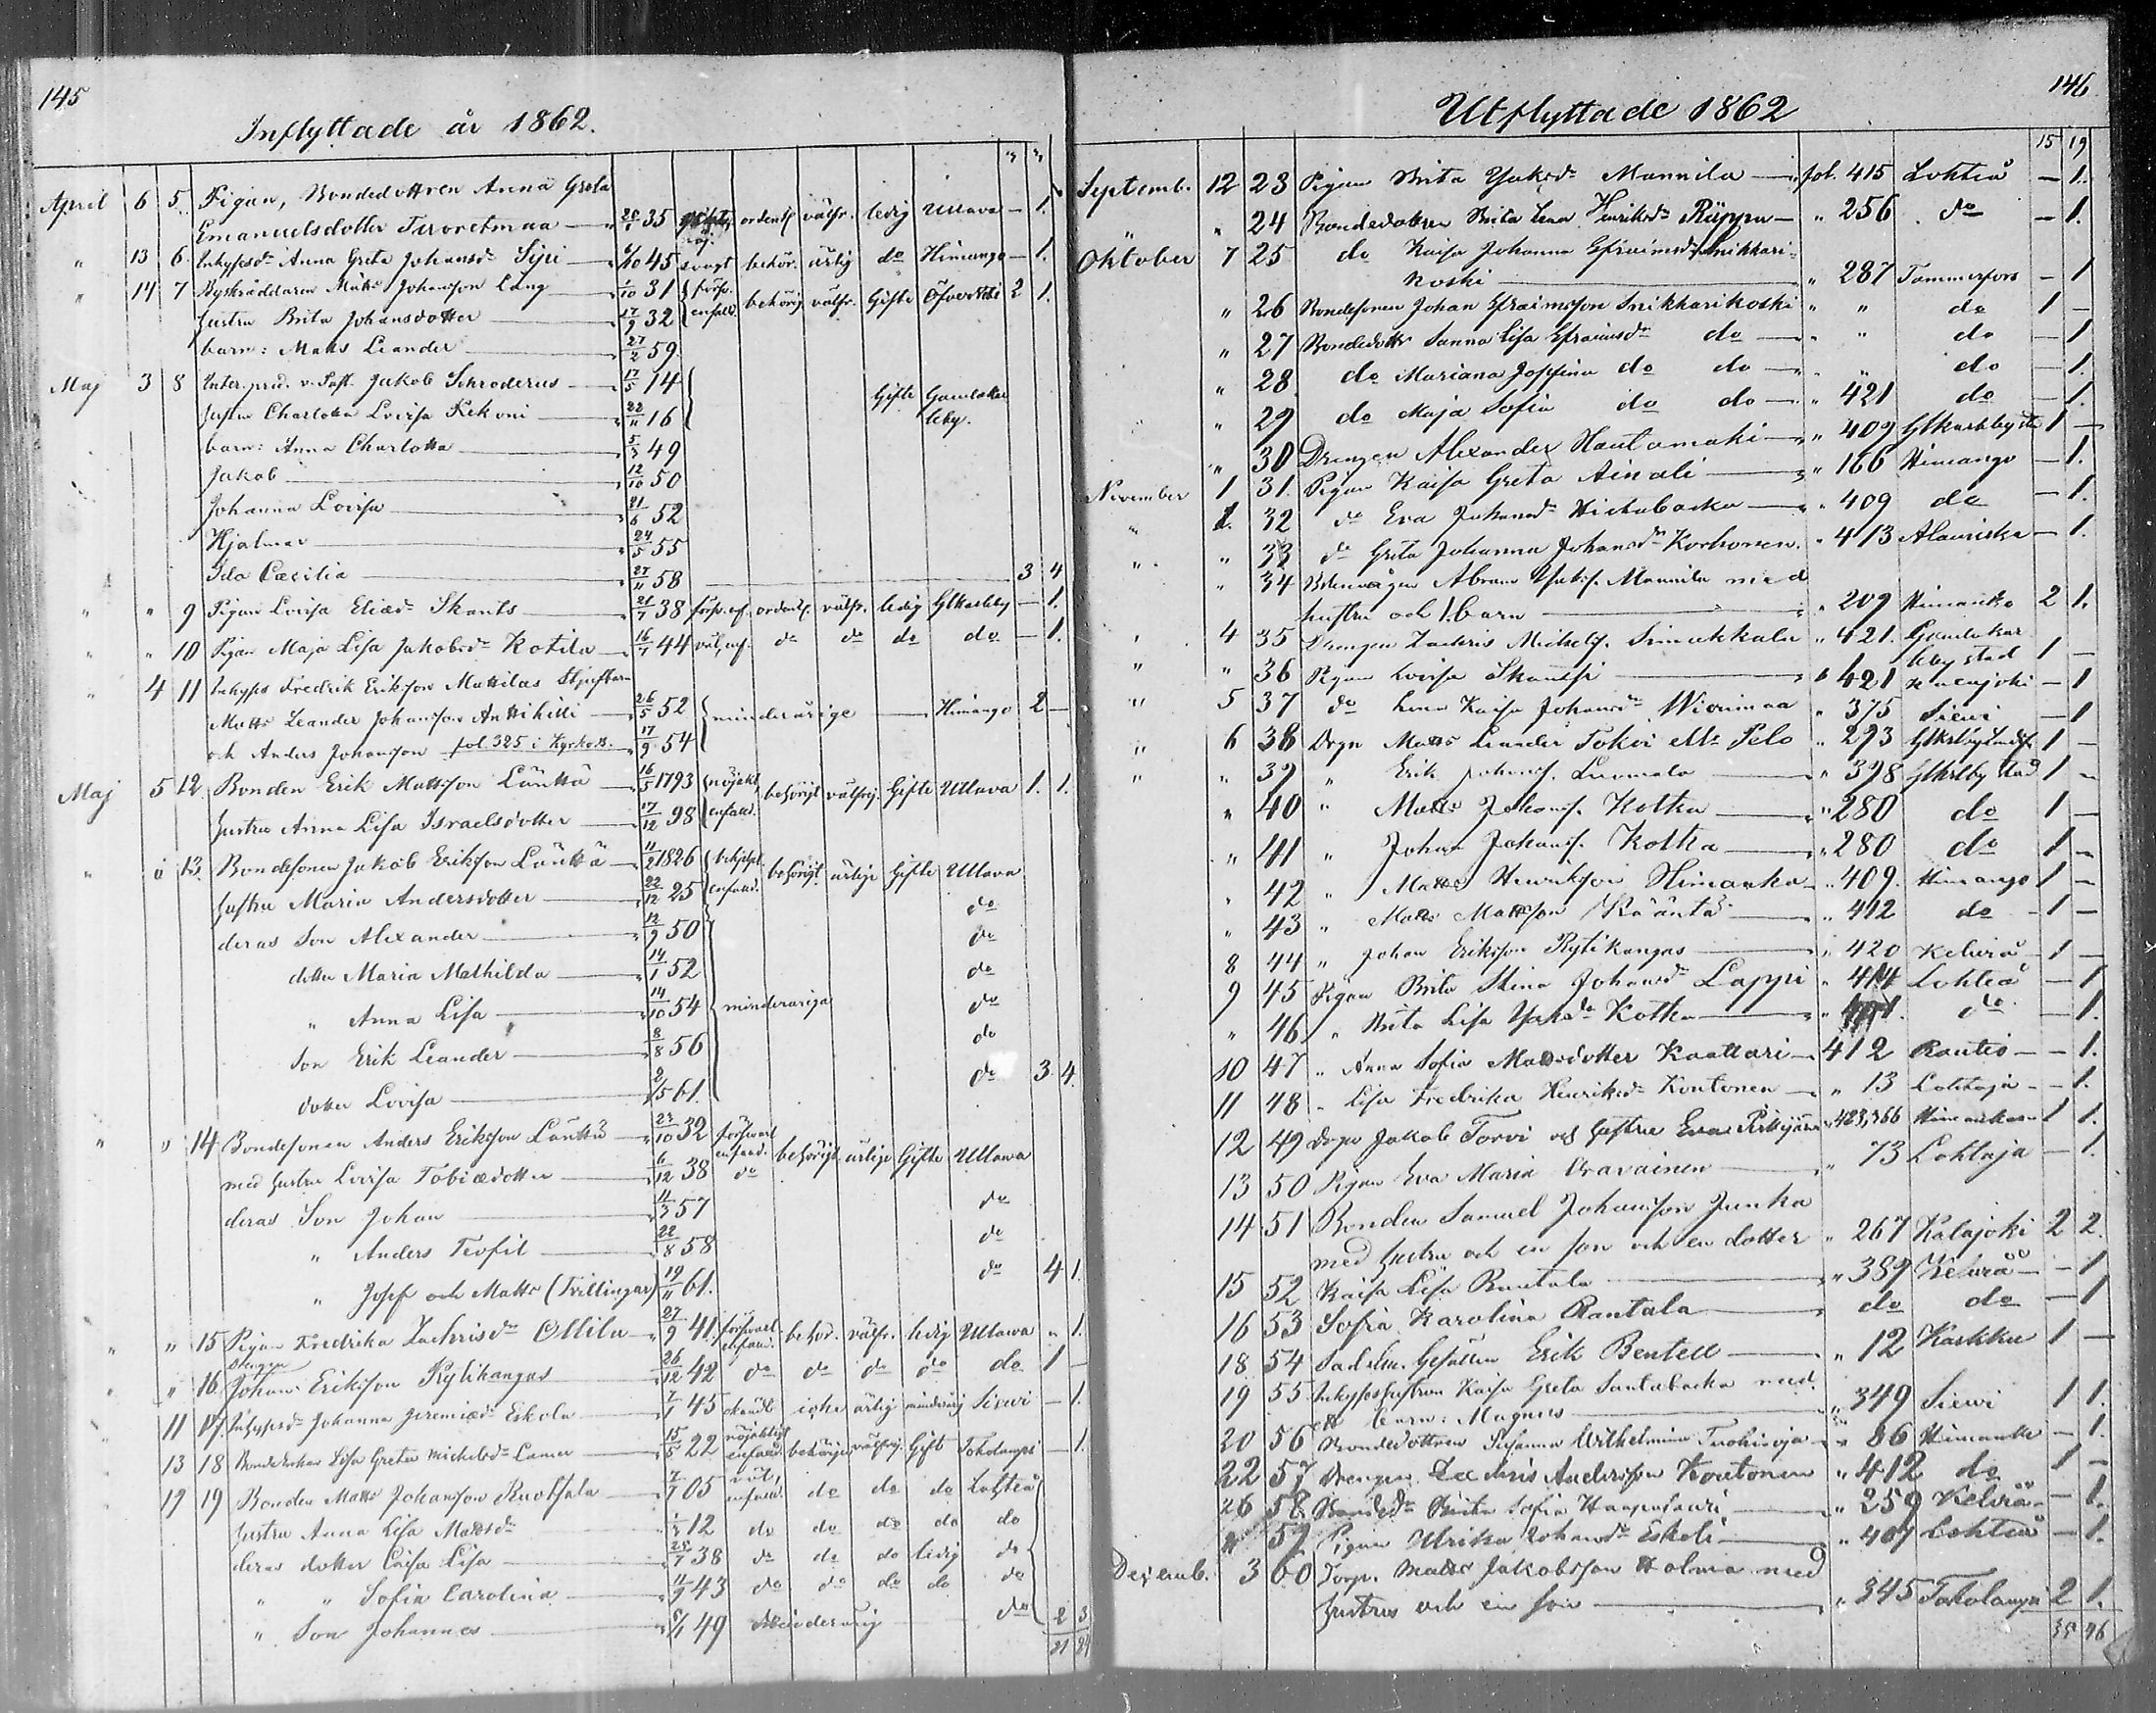 145
Inflyttade år 1862.
April 6 5. Pigan, Bondedottren Anna Greta
Emanuelsdotter Tervetmaa 20/1 35 ordentl välfr. ledig Ullava – 1.
" 13 6. Inhysesdr Anna Greta Johansdr Sipi 6/10 45 svagt behör. ärlig do Himango – 1.
" 14 7 Byskräddaren Matts Johansson Lång 1/10 31 försv. behörig välfr. Gifte Öfvervetil 2 1.
hustru Brita Johansdotter 17/9 32 enfald.
barn: Matts Leander 27/2 59
Maj 3 8 Jakob Schroderus 17/5 14
hustru Charlotta Lovisa Kekoni 22/11 16 Gifte Gamlakarleby.
barn: Anna Charlotta 5/3 49
Jakob 12/10 50
Johanna Lovisa 21/6 52
Hjalmar 24/5 55
Ida Cæcilia 27/11 58 3 4
" " 9 Pigan Lovisa Eliædr Skants 21/7 38 försv. enf. ordentl. välfr. ledig Glkarleby – 1.
" " 10 Pigan Maja Lisa Jakobsdr Kotila 16/1 44 väl, enf. do do do do – 1.
" 4 11 Inhyses Fredrik Eriksson Mattilas Styfbarn
Matts Leander Johansson Anttihilli 26/5 52 minderårige Himango 2 –
och Anders Johansson fol. 325 i Kyrkob. 17/9 54
Maj 5 12 Bonden Erik Mattsson Länttä 16/5 1793 nöjakt. behörigt välfrej. Gifte Ullava 1. 1.
hustru Anna Lisa Israelsdotter 17/12 98 enfald.
" " 13. Bondesonen Jakob Eriksson Länttä 11/2 1826 behörigt ärlige Gifte Ullava
hustru Maria Andersdotter 22/12 25 enfald. do
deras Son Alexander 12/9 50 do
dotter Maria Mathilda 14/1 52 do
" Anna Lisa 14/10 54 minderåriga do
Son Erik Leander 8/8 56 do
dotter Lovisa 2/5 61. do 3 4.
" " 14 Bondesonen Anders Eriksson Länttä 23/10 32 försvarl enfald. behörigt ärlige Gifte Ullava
med hustru Lovisa Tobiædotter 6/12 38 do
deras Son Johan 11/3 57 do
" Anders Teofil 22/8 58 do
" Josef och Matts (Tvillingar) 19/11 61. do 4 1.
" " 15 Pigan Fredrika Zachrisdr Ollila 27/9 41. försvarl enfald. behör. välfr. ledig Ullawa " 1.
" " 16 Drengen Johan Eriksson Rytikangas 26/12 42 do do do do do 1 –
11 17. Inhysesdr Johanna Jeremiædr Eskola 7/1 45 icke ärlig minderårig Siewi – 1.
13 18 Lisa Greta Michelsdr 15/5 22 nöjaktigt enfald behörigen välfrej. Gift Toholampi – 1.
19 19 Bonden Matts Johansson Ruotsala 7/7 05 väl, enfald. do do do Lohteå
hustru Anna Lisa Mattsdr 1/3 12 do do do do do
deras dotter Caisa Lisa 25/7 38 do do do ledig do
" " Sofia Carolina 11/9 43 do do do do do
" Son Johannes 5/1 49 Minderårig do 2 3
21 24
146
Utflyttade 1862
15 19
Septemb. 12 23 Pigan Brita Jaksdr Mannila fol. 415 Lohteå – 1.
" " 24 Bondedottren Brita Lena Henriksdr Rüppa " 256 do – 1.
Oktober 7 25 do Kaisa Johanna Efraimsdr Snikkari-
koski " 287 Tammerfors – 1
" 26 Bondesonen Johan Efraimsson Snikkarikoski " " do 1 –
" 27 Bondedottr Sanna Lisa Efraimsdr do " " do – 1
" 28 do Mariana Josefina do do " " do – 1.
" 29 do Maja Sofia do do " 421 do – 1.
" 30 Drengen Alexander Hautamäki " 409 Glkarleby std 1 –
November 1 31. Pigan Kaisa Greta Ainali " 166 Himango – 1.
" 1. 32 do Eva Johansdr Hietabacka " 409 do – 1.
" " 33 do Greta Johanna Johansdr Korhonen. " 413 Alavieska – 1.
" 34 Abram Jaks. Mannila med
hustru och 1. barn " 209 Himanka 2 1.
" 4 35 Drengen Zachris Michelss. Simukkala " 421. Gamlakar-
leby stad 1 –
" " 36 Pigan Lovisa Skantsi " 421 – 1
" 5 37 do Lena Kaisa Johansdr Wierimaa " 375 Siewi – 1
" 6 38 Drgn Matts Leander Tokoi ell. Pelo " 293 Glkrlby Landsf. 1 –
" " 39 " Erik Johanss. Luomala " 398 Glkrlby stad 1 –
" 40 " Matts Johanss. Kotka " 280 do 1 –
" 41 " Johan Johanss. Kotka " 280 do 1 –
" 42 " Matts Henriksson Himanka " 409. Himango 1 –
" 43 " Matts Mattsson Kääntä " 412 do 1 –
8 44 " Johan Eriksson Rytikangas " 420 Kelviå 1 –
9 45 Pigan Brita Stina Johansdr Lappi " 414 Lohteå – 1
" 46 " Brita Lisa Jaksdr Kotka " do – 1.
10 47 " Anna Sofia Mattsdotter Kaattari 412 Rautio – 1.
11 48 " Lisa Fredrika Henriksdr Kontonen " 13 Lohtaja – 1.
12 49 Drgn Jakob Torvi och hustru Eva Pirkijärvi " 423,366 Himanka 1 1.
13 50 Pigan Eva Maria Oravainen " 73 Lohtaja – 1.
14 51 Bonden Samuel Johansson Junka
med hustru och en son och en dotter " 267 Kalajoki 2 2.
15 52 Kaisa Lisa Rantala " 389 Kelviå – 1
16 53 Sofia Karolina Rantala do do – 1
18 54 Sadelm. Gesällen Erik Bentell " 12 Karkku 1 –
19 55 Inhyseshustrun Kaisa Greta Santabacka med
ett barn: Magnus " 349 Siewi 1 1.
20 56 Bondedottren Susanna Wilhelmina Tuohioja " 86 Himanka – 1.
22 57 Drengen Zachris Andersson Kontonen " 412 do 1 –
26 58. Bondedr Brita Sofia Haapasaari " 259 Kelviå – 1.
" 59 Pigan Ulrika Johansdr Eskoli " 407 Lohteå – 1.
Decemb. 3 60 Torp. Matts Jakobsson Holma med
hustru och en son " 345 Toholampi 2 1.
35 46